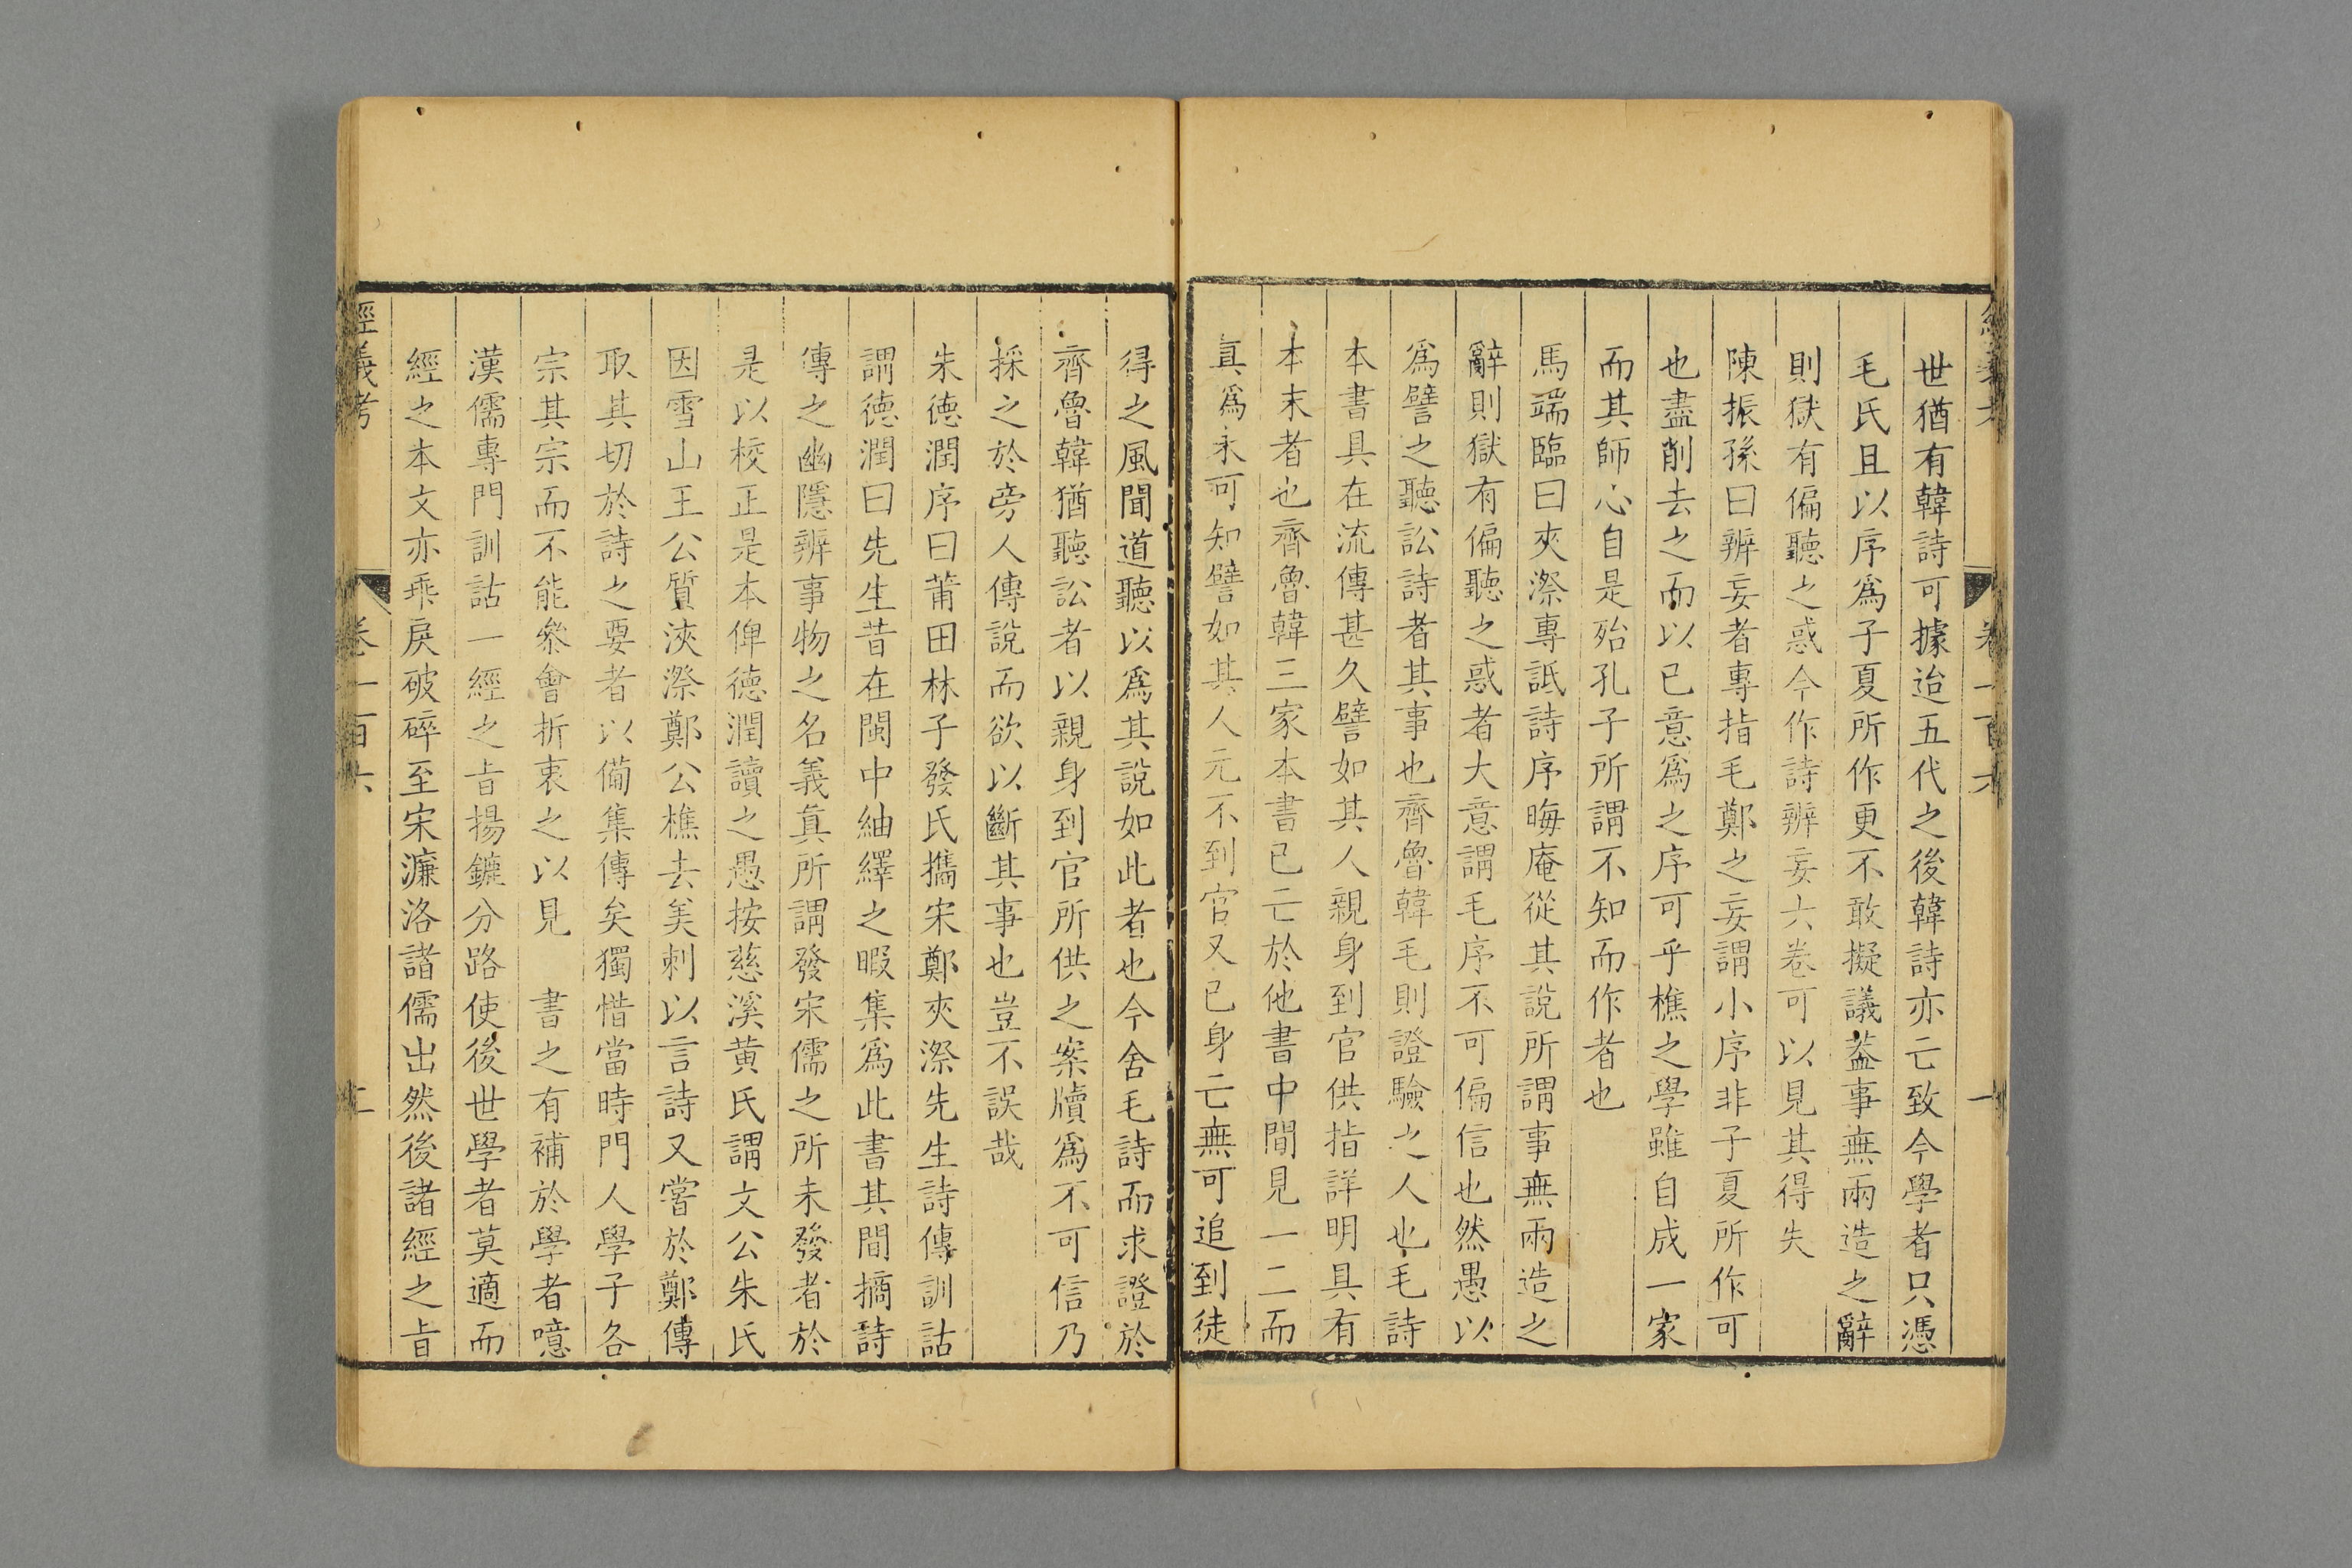 世猶有韓詩可據迨五代之後韓詩亦亡致今學者只憑
毛氏且以序爲子夏所作更不敢擬議葢事無兩造之辭
則獄有偏聽之惑今作詩辨妄六卷可以見其得失
陳振孫曰辨妄者專指毛鄭之妄謂小序非子夏所作可
也盡削去之而以已意爲之序可乎樵之學雖自成一家
而其師心自是殆孔子所謂不知而作者也
馬端臨曰夾漈專詆詩序晦庵從其說所謂事無兩造之
辭則獄有偏聽之惑者大意謂毛序不可偏信也然愚以
爲譬之聽訟詩者其事也齊魯韓毛則證驗之人也毛詩
本書具在流傳甚久譬如其人親身到官供指詳明具有
本末者也齊魯韓三家本書已亡於他書中間見一二而
眞爲未可知譬如其人元不到官又已身亡無可追到徒
得之風聞道聽以爲其說如此者也今舍毛詩而求證於
齊魯韓猶聽訟者以親身到官所供之案牘爲不可信乃
採之於旁人傳說而欲以斷其事也豈不誤哉
朱德潤序曰莆田林子發氏攜宋鄭夾漈先生詩傳訓詁
謂德潤曰先生昔在閩中紬繹之暇集爲此書其間摘詩
傳之幽隱辨事物之名義真所謂發宋儒之所未發者於
是以校正是本俾德潤讀之愚按慈溪黄氏謂文公朱氏
因雪山王公質浹漈鄭公樵去美刺以言詩又嘗於鄭傳
取其切於詩之要者以僃集傳矣獨惜當時門人學子各
宗其宗而不能叅會折衷之以見　書之有補於學者噫
漢儒專門訓詁一經之㫖揚鑣分路使後世學者莫適而
經之本文亦乖戾破碎至宋濂洛諸儒出然後諸經之㫖
經義考
卷一百六